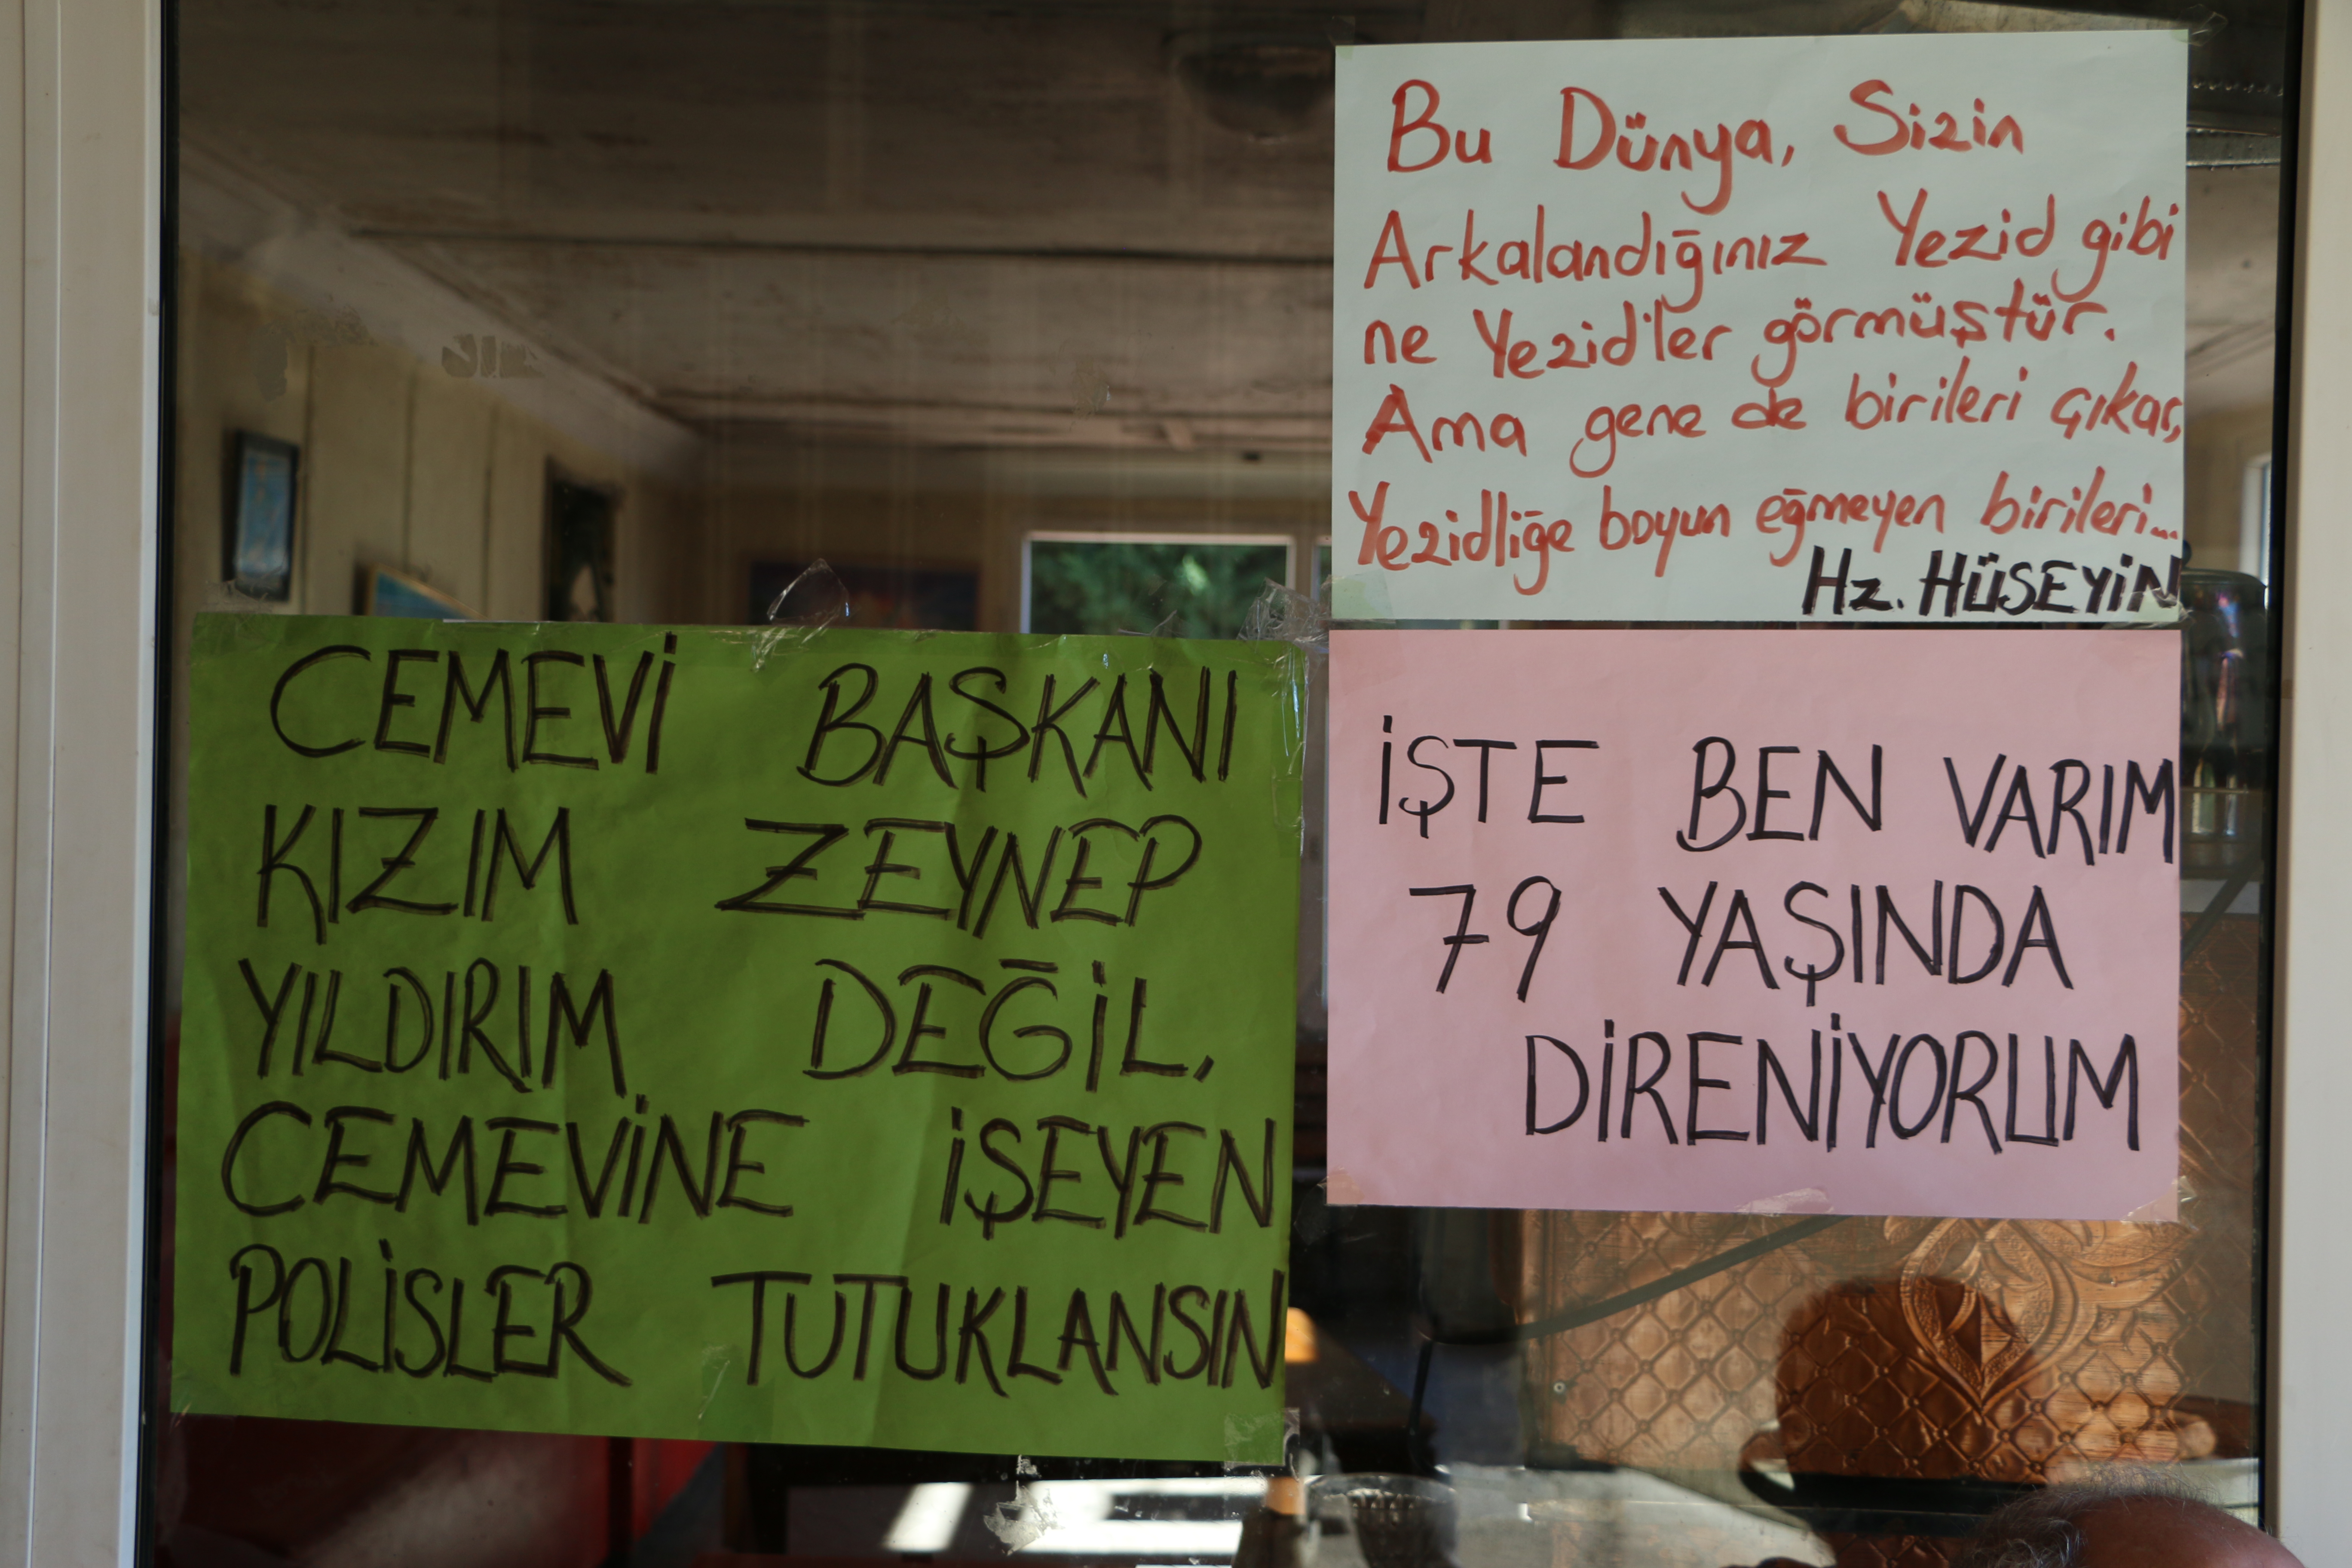 Bu Dünya, Sizin
Arkalandığınız Yezid gibi
ne Yezid'ler görmüştür.
Ama gene de birileri çıkar,
Yezidliğe boyun eğmeyen birileri...
Hz. HÜSEYİN
CEMEVİ BAŞKANI
KIZIM ZEYNEP
YILDIRIM DEĞİL,
CEMEVİNE İŞEYEN
POLİSLER TUTUKLANSIN
İŞTE BEN VARIM
79 YAŞINDA
DİRENİYORUM